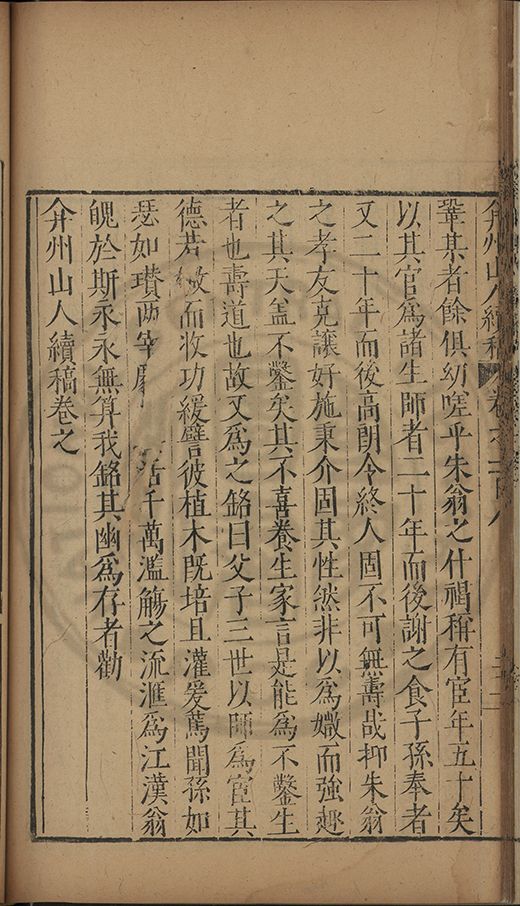 弇州山人續稿 卷之一百八
鞏某者餘俱幼嗟乎朱翁之什褐稱有宦年五十矣
以其官爲諸生師者二十年而後謝之食子孫奉者
又二十年而後高朗令終人固不可無壽哉抑朱翁
之孝友克讓好施秉介固其性然非以爲媺而強趣
之其天盖不鑿矣其不喜養生家言是能爲不鑿生
者也壽道也故又爲之銘曰父子三世以師爲宦其
德若 而收功緩譬彼植木旣培且灌爰篤聞孫如
瑟如瓚兩宰 活千萬濫觴之流滙爲江漢翁
魄於斯永永無算我銘其幽爲存者勸
弇州山人續稿卷之